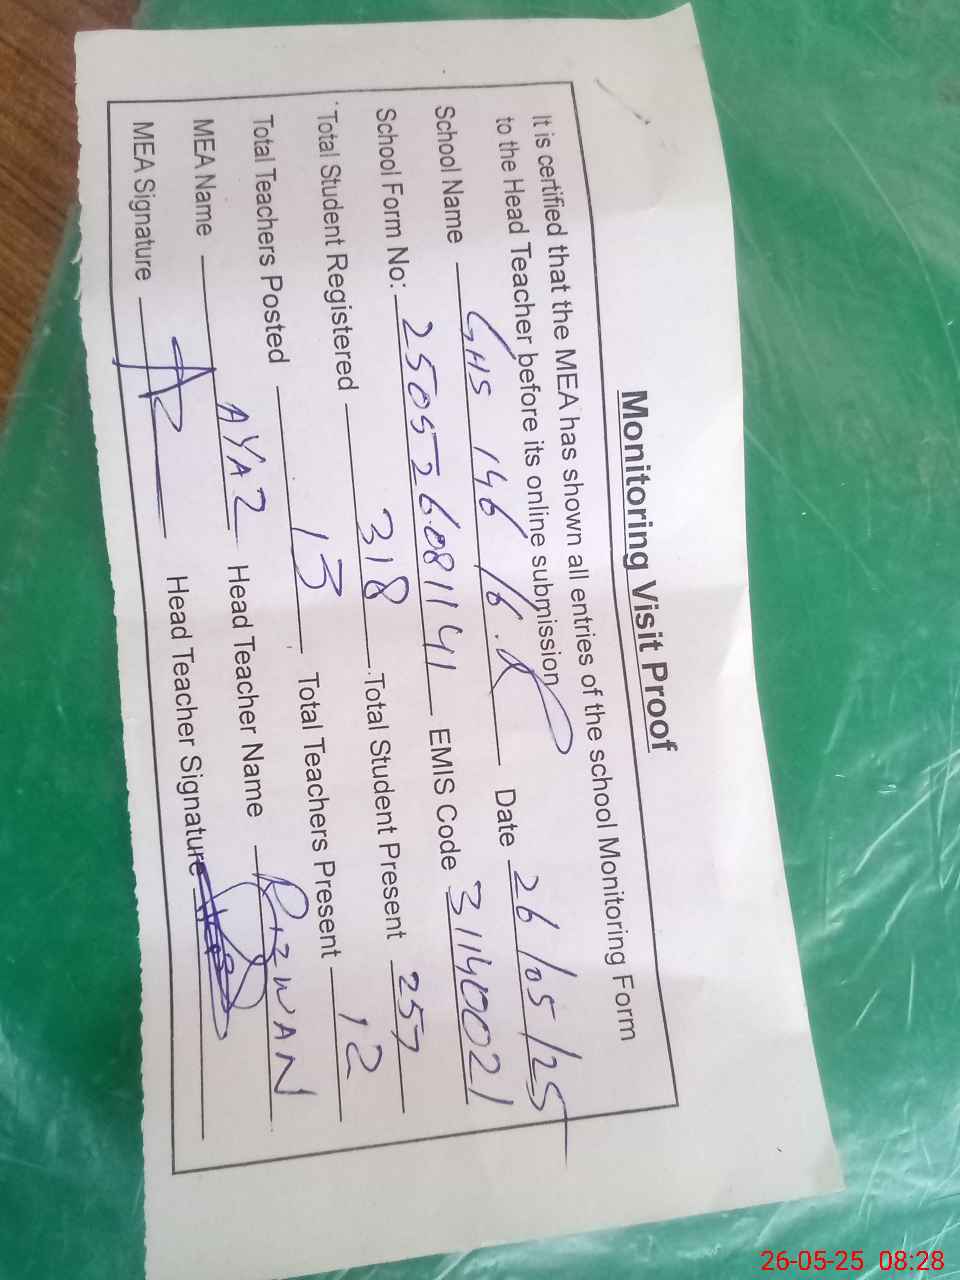 Monitoring Visit Proof
It is certified that the MEA has shown all entries of the school Monitoring Form
to the Head Teacher before its online submission
School Name GHS 146/6.R Date 26/05/25
School Form No: 250526081141 EMIS Code 31140021
Total Student Registered 318 Total Student Present 257
Total Teachers Posted 13 Total Teachers Present 12
MEA Name AYAZ Head Teacher Name RIZWAN
MEA Signature Head Teacher Signature
26-05-25 08:28